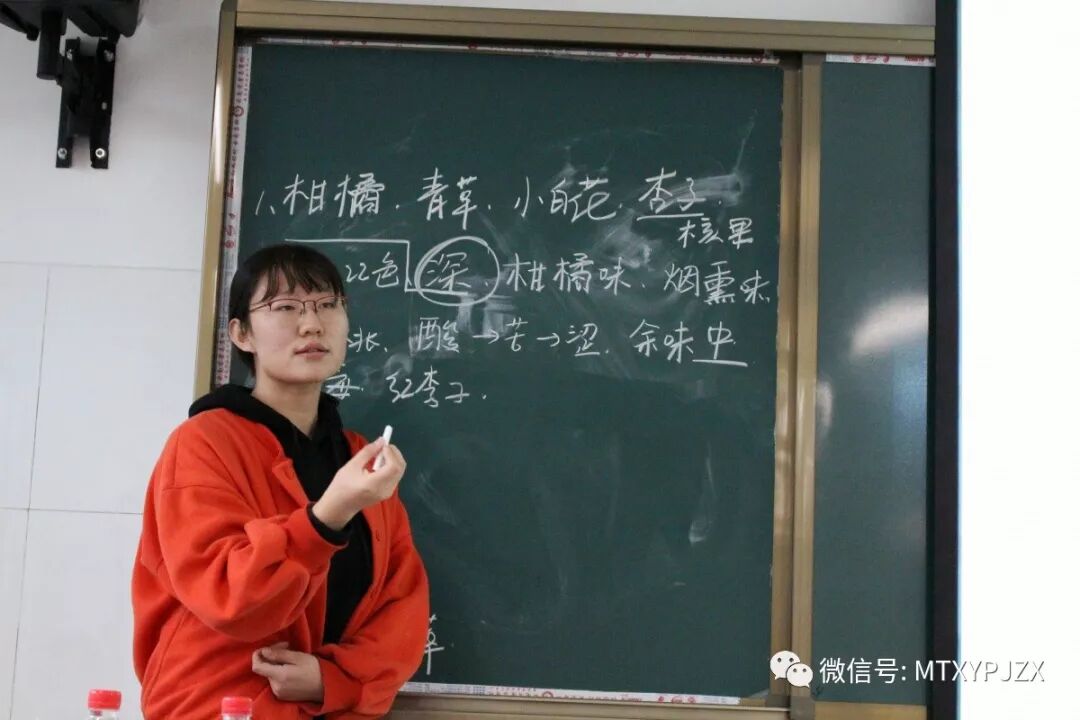 1、柑橘. 青草. 小白花. 李子.
核果
22色 深. 柑橘味. 烟熏味.
涨. 酸→苦→涩. 余味中
莓. 红李子.
草
微信号: MTXYPJZX